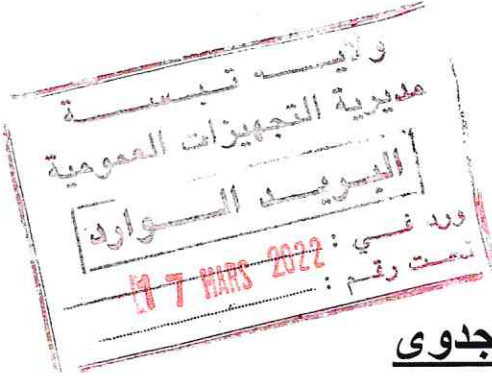 ولايـــة تـبـســـة
مديرية التجهيزات العمومية
البريـد الـــوارد
ورد في :
17 MARS 2022
تحت رقم :
جدوى